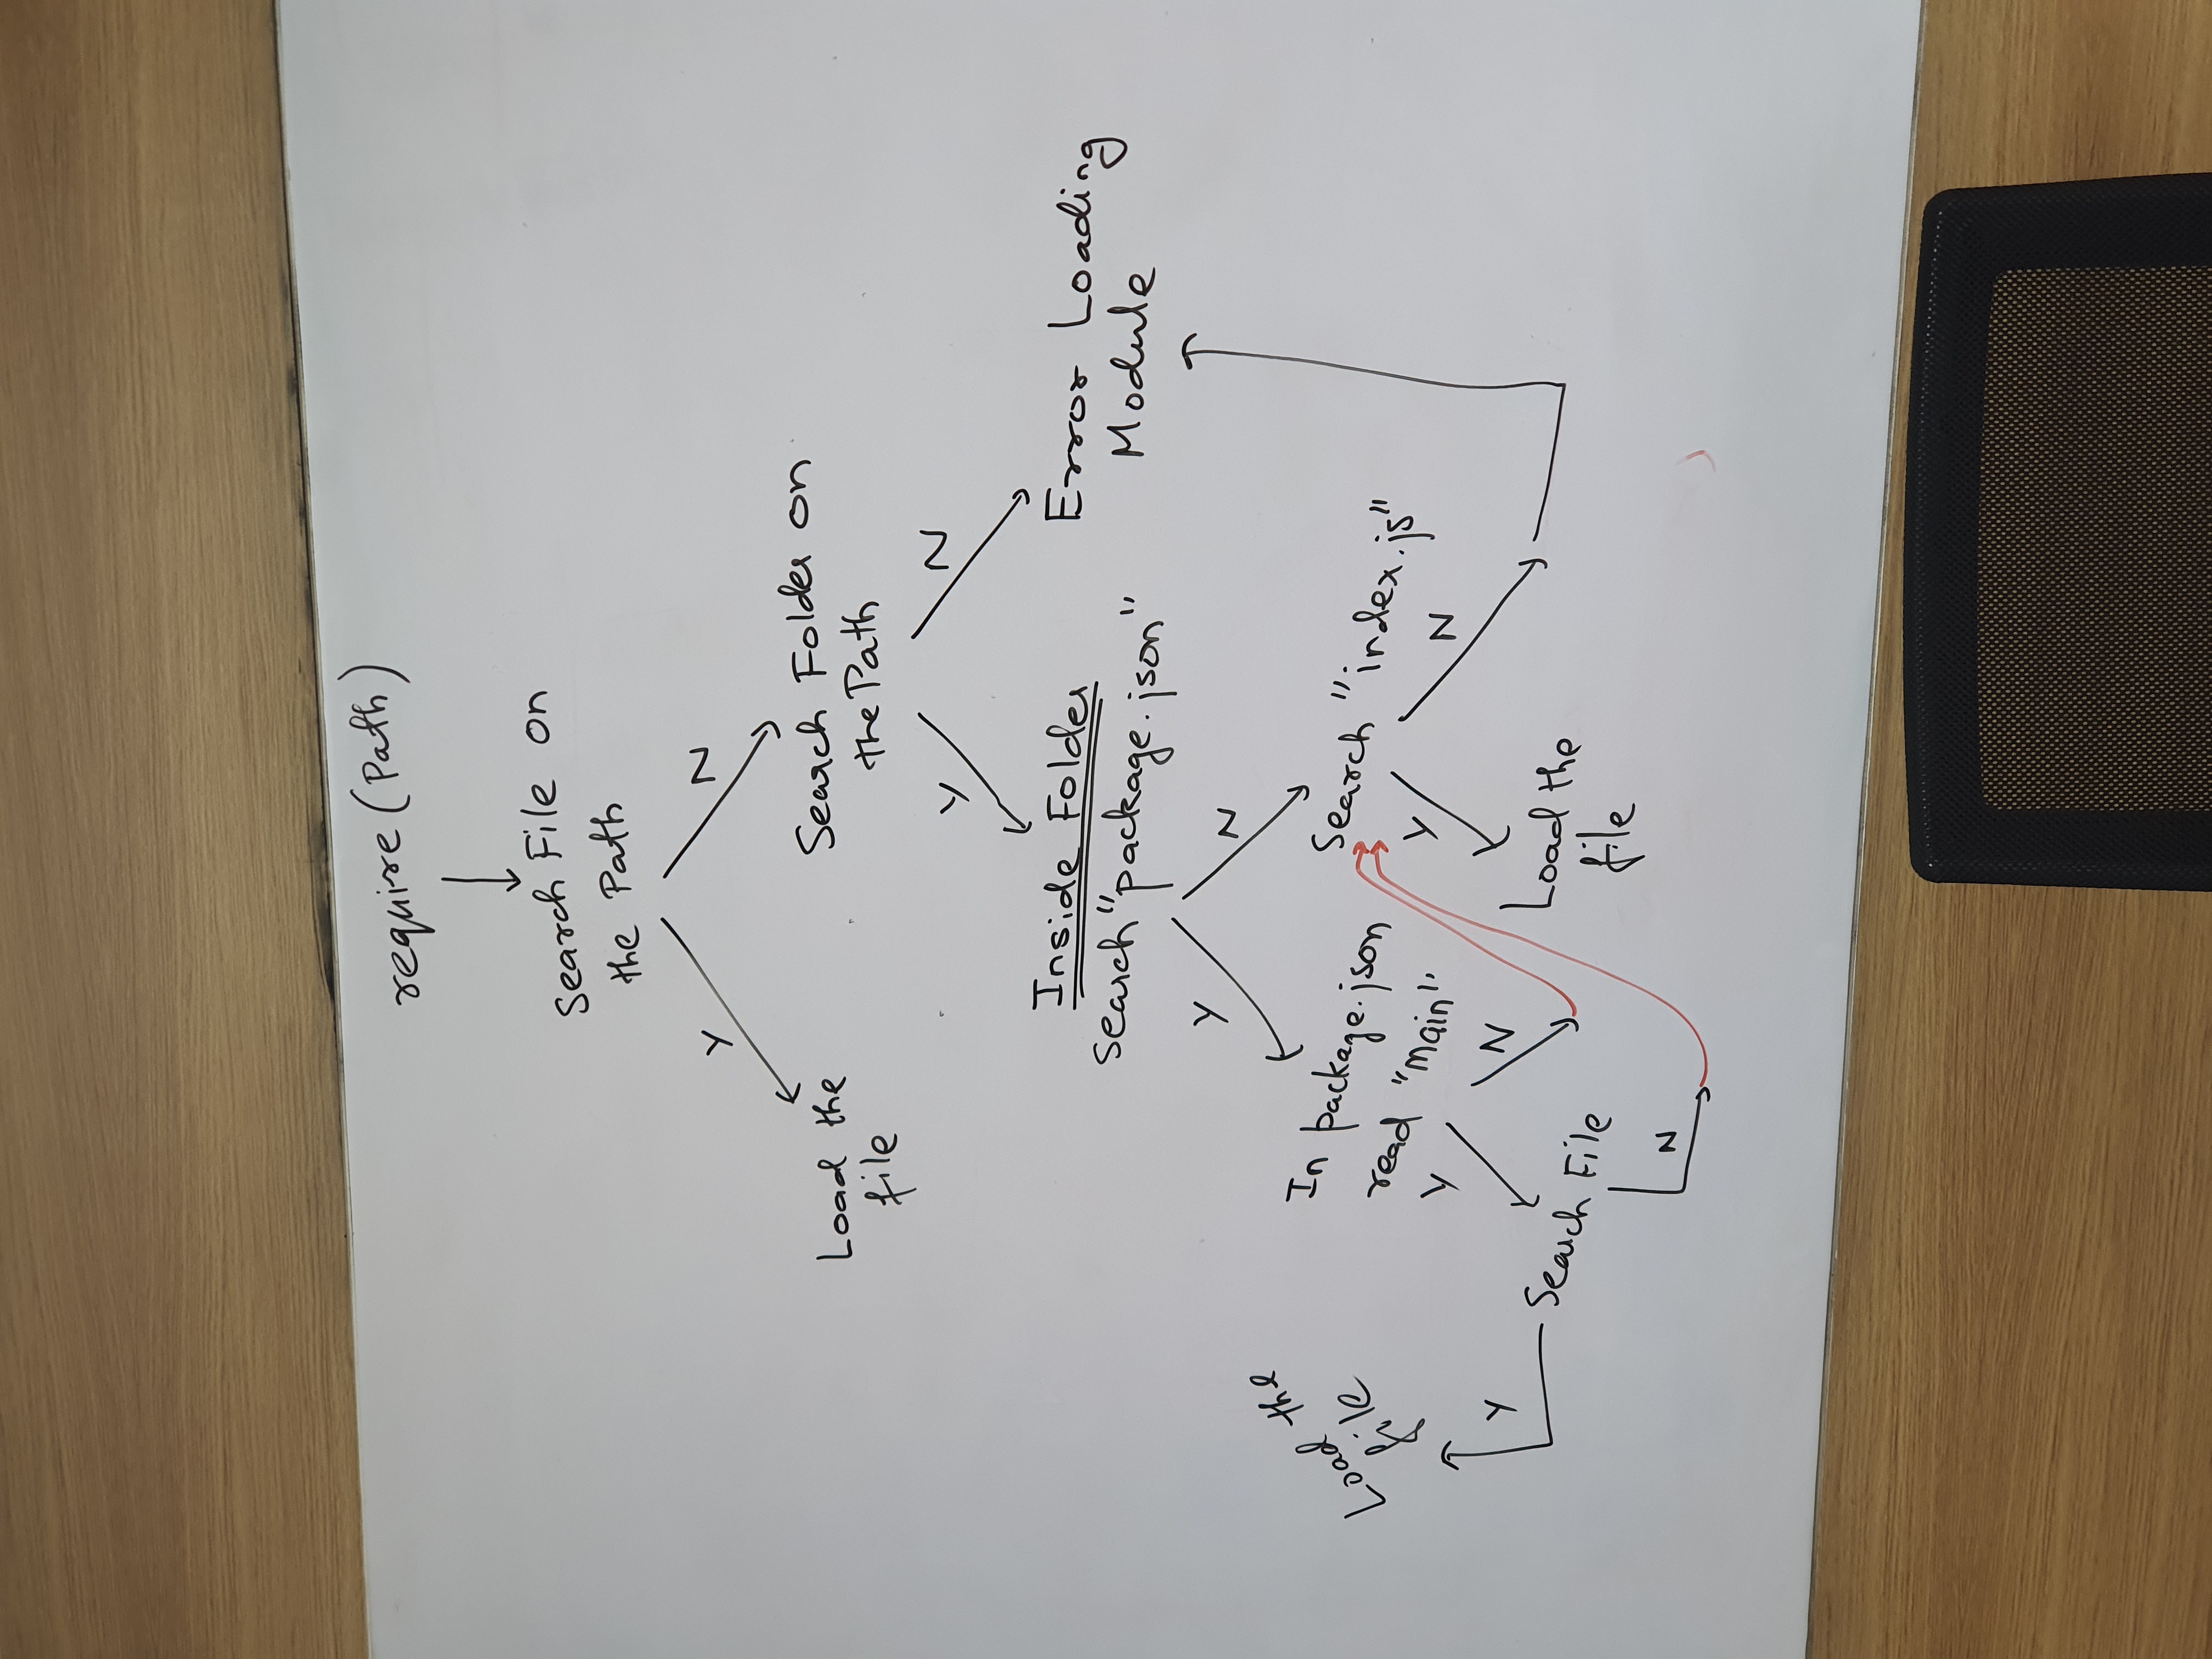 require (Path)
Search File on
the Path
Y
N
Load the
file
Search Folder on
the Path
Y
N
Inside Folder
Search "package.json"
Error Loading
Module
Y
N
Load the
file
In package.json
read "main"
Search "index.js"
Y
N
Y
N
Y
Search File
Load the
file
N